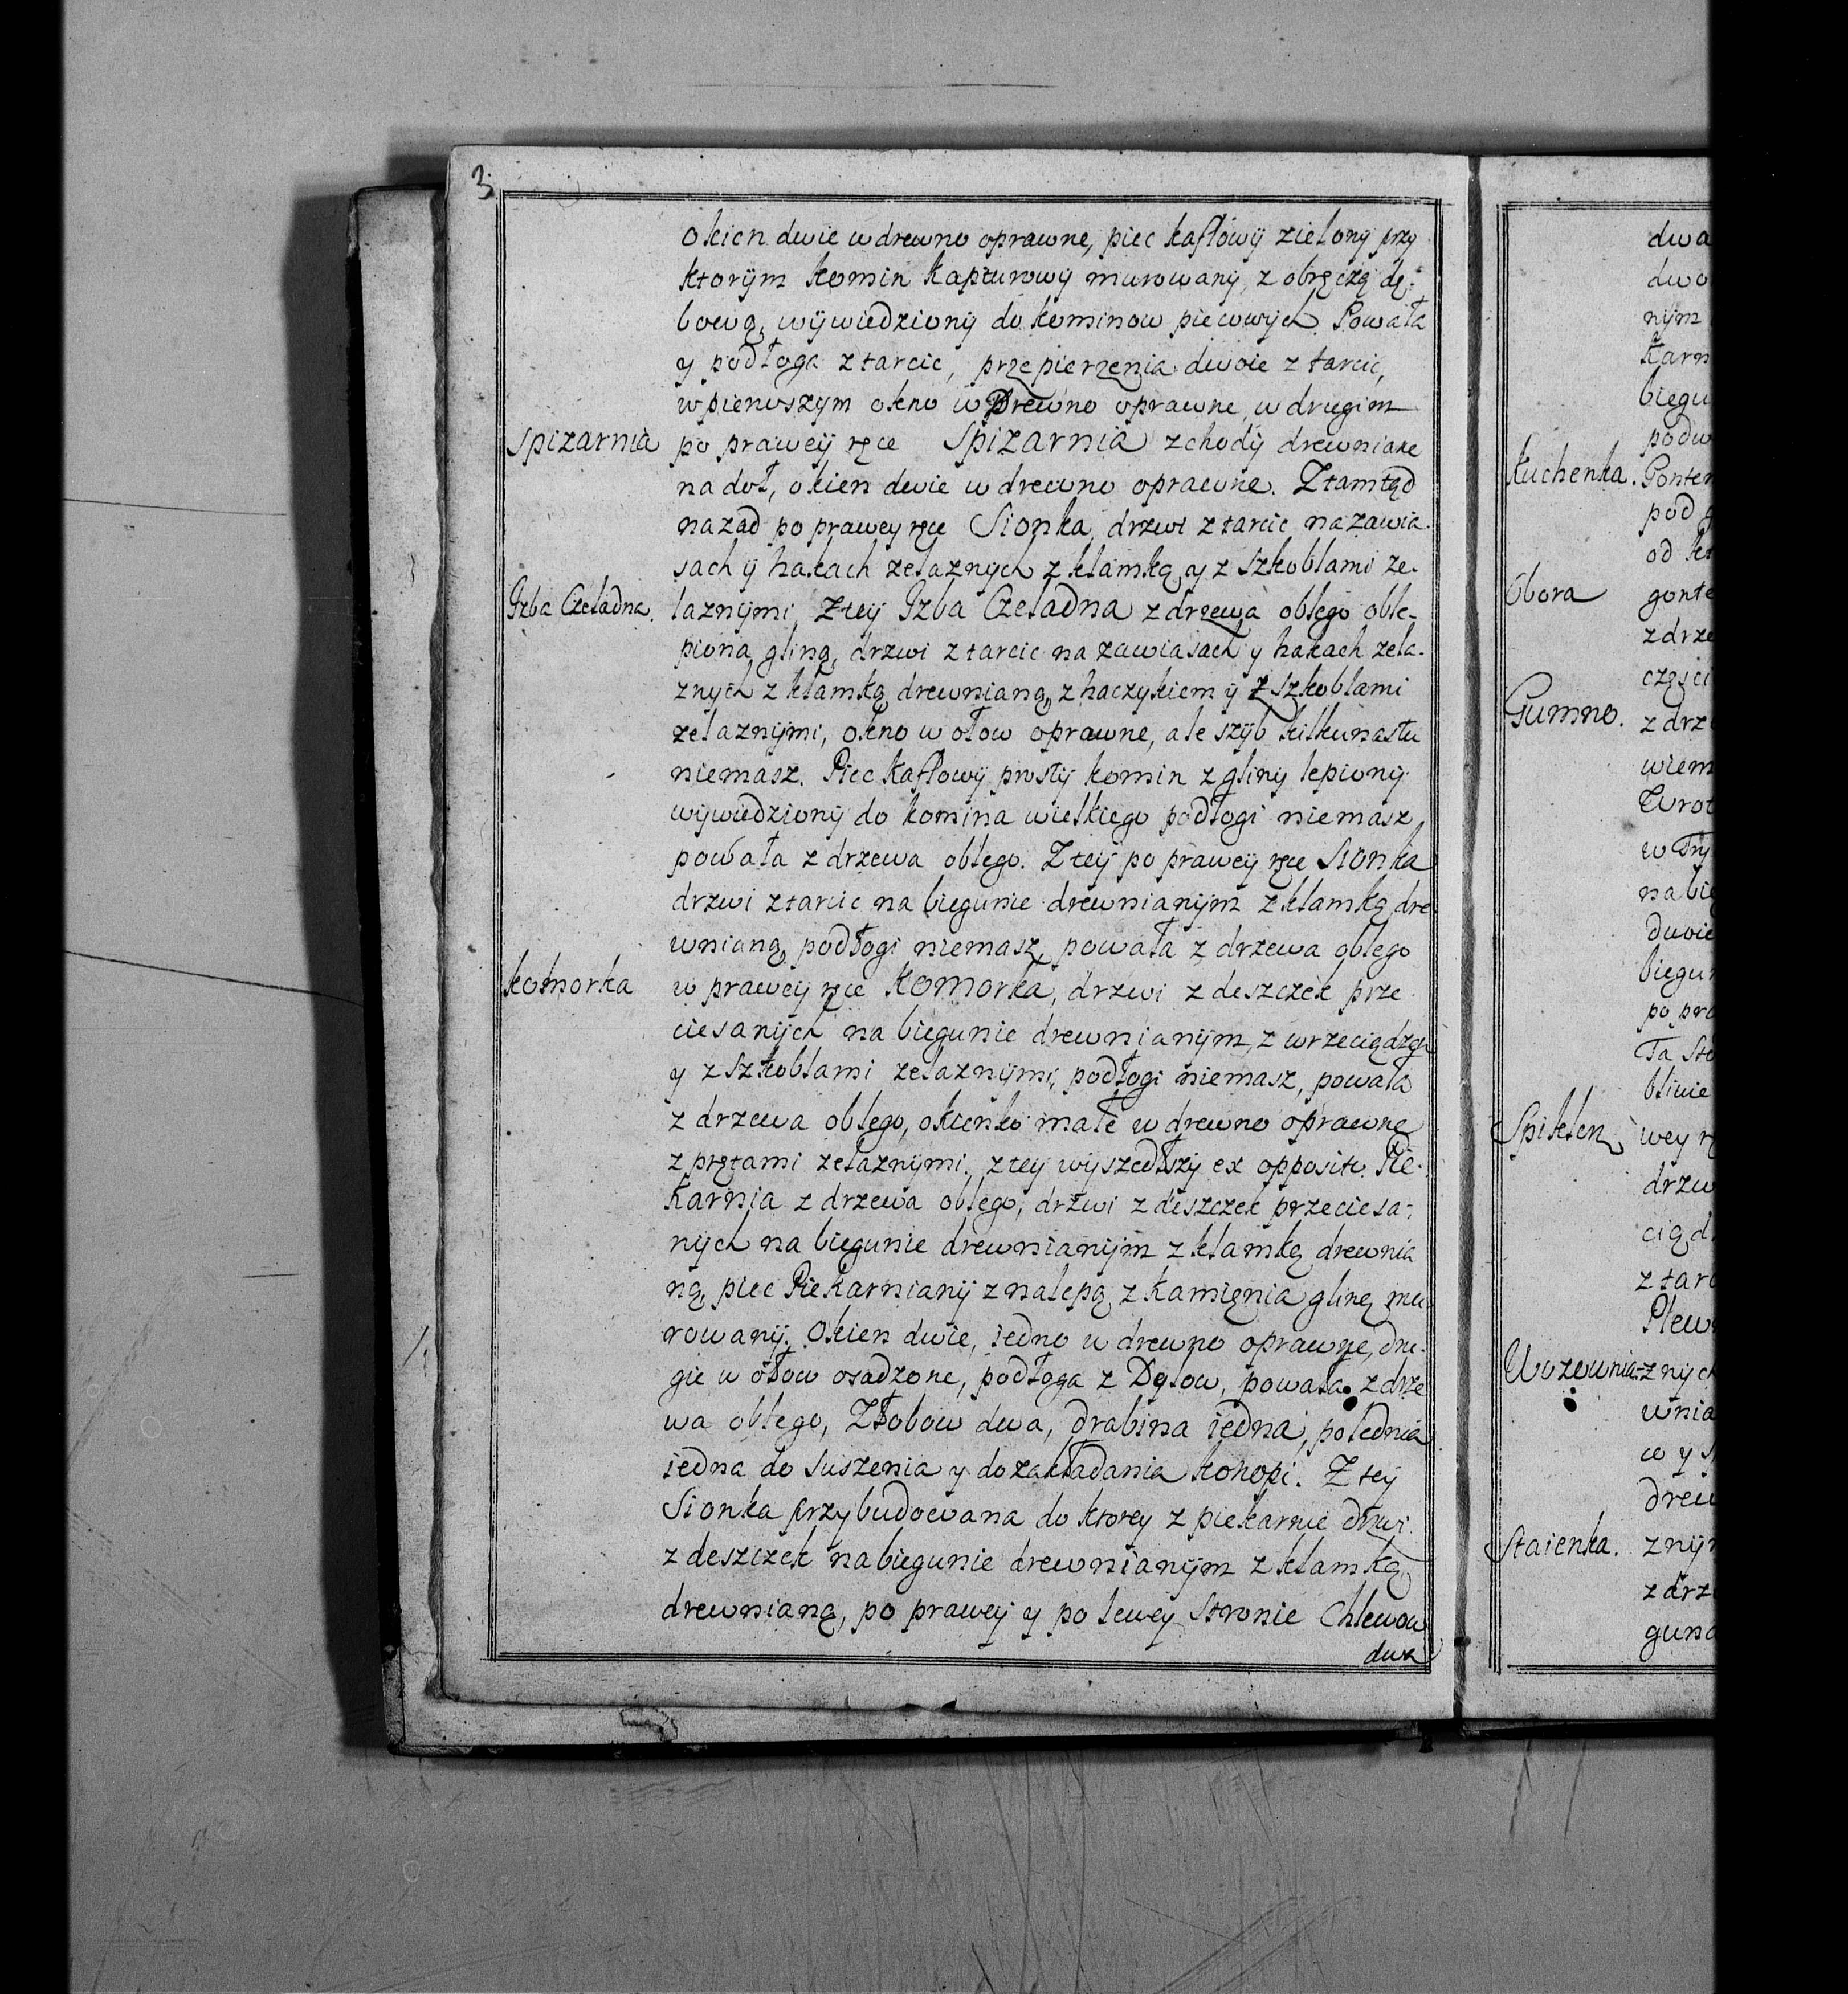 3
okien dwie w drewno oprawne, piec kaflowÿ zielonÿ przÿ
ktorÿm komin kapturowÿ murowanÿ, z obręczą dę-
bową, wÿwiedzionÿ do kominow piecowÿch. Powała
y podłoga z tarcic, przepierzenia dwoie z tarcic,
w pierwszym okno w Drewno oprawne, w drugim
Spizarnia
po prawey ręce Spizarnia zchodÿ drewniane
na doł, okien dwie w drewno oprawne. Ztamtąd
nazad po prawey ręce Sionka, drzwi z tarcic na zawia-
sach ÿ hakach zelaznych z klamką y z szkoblami ze-
Izba Czeladna.
laznÿmi, Z teÿ Izba Czeladna z drzewa obłego oble-
piona gliną, drzwi z tarcic na zawiasach y hakach zela-
znych z klamką drewnianą, z haczykiem ÿ z szkoblami
zelaznÿmi, okno w ołow oprawne, ale szÿb kilkunastu
niemasz. Piec kaflowy prostÿ komin z glinÿ lepionÿ
wÿwiedzionÿ do komina wielkiego podłogi niemasz
powała z drzewa obłego. Z teÿ po prawey ręce Sionka
drzwi z tarcic na biegunie drewnianÿm z klamką dre
wnianą, podłogi niemasz, powała z drzewa obłego
komorka
w prawey ręce Komorka, drzwi z deszczek prze
ciesanÿch na biegunie drewnianÿm, z wrzeciądzem
y z szkoblami zelaznÿmi, podłogi niemasz, powała
z drzewa obłego, okienko małe w drewno oprawne
z prętami zelaznÿmi, z tey wÿszedłszÿ ex opposito Pie-
karnia z drzewa obłego, drzwi z deszczek przeciesa-
nÿch na biegunie drewnianÿm z klamką drewnia
ną, piec Piekarnianÿ z nalepą z kamięnia gliną mu
rowanÿ. Okien dwie, iedno w drewno oprawne, dru-
gie w ołow osadzone, podłoga z Dylow, powała z drze
wa obłego, Złobow dwa, drabina iedna, polednia
iedna do suszenia y do zakładania konopi. Z teÿ
Sionka przybudowana do ktorey z piekarnie drzwi
z deszczek na biegunie drewnianÿm z klamką
drewnianą, po prawey y po lewey stronie Chlewow
dwa
dwa
dwo
nÿm
karn
biegu
podw
Kuchenka.
Gonte
pod g
od kt
Obora
gonte
z drze
części
Gumno.
z drz
wiem
Wrot
na bie
dwie
biegun
po pra
Ta Sto
Spiklerz
wey r
drzw
ciąd
z tarc
Plew
Wozownia
znych
wnia
drew
Staienka.
znÿm
z drz
guna